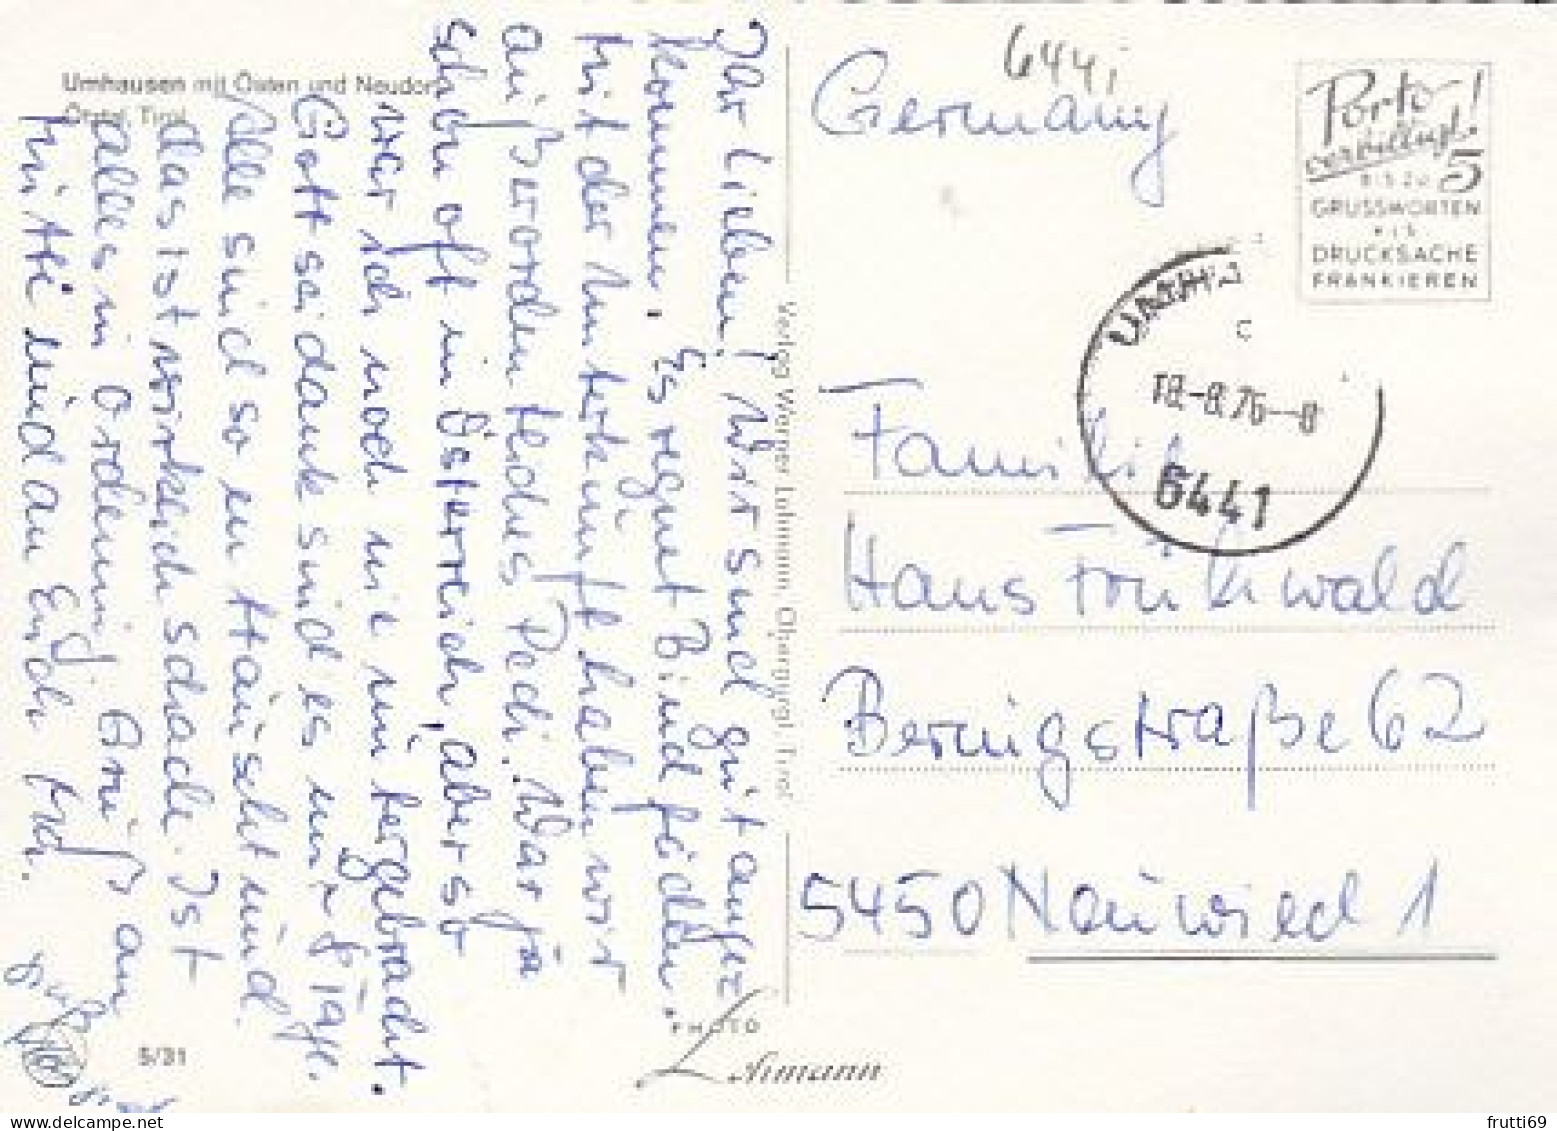 Umhausen mit Östen und Neudorf
Ötztal, Tirol
Ihr Lieben! Wir sind gut angez
kommen. Es regnet Bindfäden.
Mit der Unterkunft haben wir
außerordentliches Pech. War ja
schon oft in Österreich, aber so
war ich noch nie untergebracht.
Gott sei dank sind es nur 8 Tage.
Alle sind so enttäuscht und
das ist wirklich schade. Ist
alles in Ordnung. Gruß an
Mutti und an Euch
Verlag Werner Lohmann, Obergurgl, Tirol
PHOTO
Lohmann
5/31
6441
Germany
Porto-
verbilligt!
BIS ZU 5
GRUSSWORTEN
ALS
DRUCKSACHE
FRANKIEREN
c
18.-8.76--8
6441
Familie
Hans Frühwald
Berningstraße 62
5450 Neuwied 1
frutti69